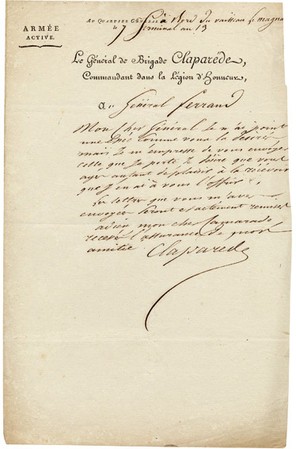 ARMÉE
ACTIVE.
Au Quartier Général du vaisseau le magna
le 7 germinal an 13
Le Général de Brigade Claparède,
Commandant dans la Légion d'Honneur,
Au Général Ferrand
Mon cher Général je n'ai point
une comme vous le désirez
mais je m'empresse de vous envoyer
celle que je porte. je désire que vous
ayez autant de plaisir à la recevoir
que j'en ai à vous l'offrir.
les lettres que vous m'avez
envoyées seront exactement remises
adieu mon cher camarade
recevez l'assurance de mon
amitié Claparede